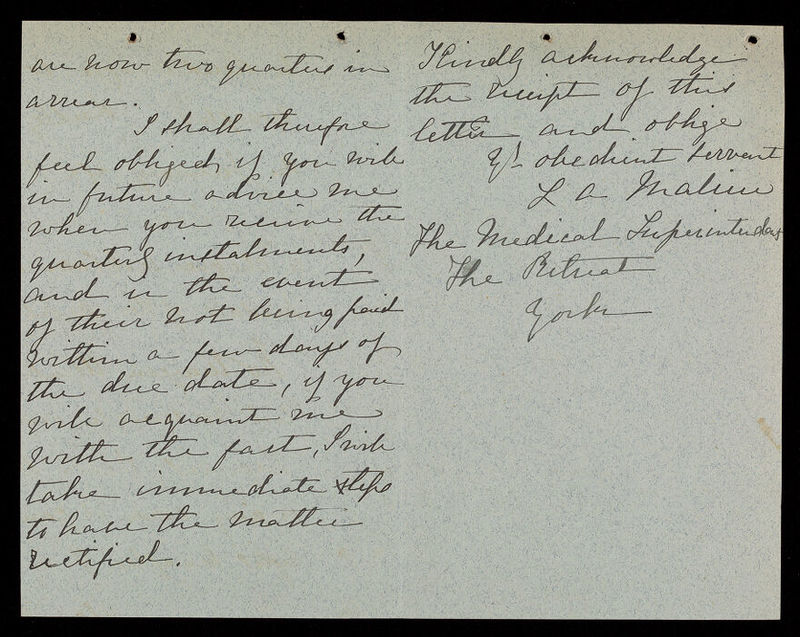 are now two quarters in
arrear.
I shall therefore
feel obliged, if you will
in future advice me
when you receive the
quarterly instalments,
and in the event
of their not being paid
within a few days of
the due date, if you
will acquaint me
with the fact, I will
take immediate steps
to have the matter
rectified.
Kindly acknowledge
the receipt of this
letter and oblige
Yr obedient servant
L a
The Medical Superintendent
The Retreat
York